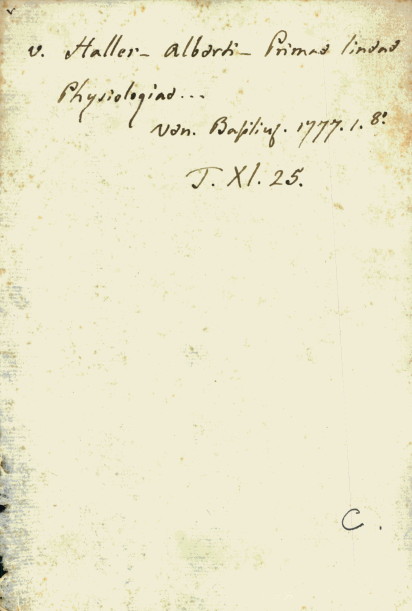 v. Haller – Alberti – Primae lineae
Physiologiae...
Ven. Basilius. 1777. 1. 8º
T. XI. 25.
C.